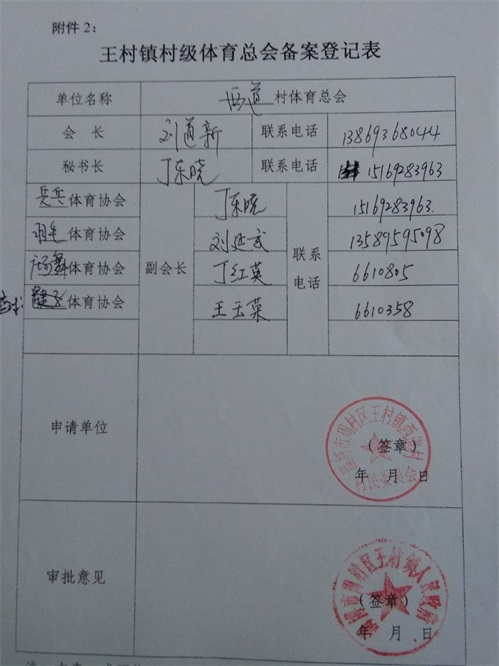 附件2:
王村镇村级体育总会备案登记表
单位名称 西道 村体育总会
会 长 刘道新 联系电话 13869368044
秘书长 丁东晓 联系电话 15169283963
兵乓体育协会 丁东晓 15169283963
羽毛体育协会 刘延武 13589595098
广场舞体育协会 丁红英 6610805
毽子体育协会 王玉荣 6610358
副会长
联系
电话
申请单位
淄博市周村区王村镇西道村
村民委员会
(签章)
年 月 日
审批意见
淄博市周村区王村镇人民政府
(签章)
年 月 日